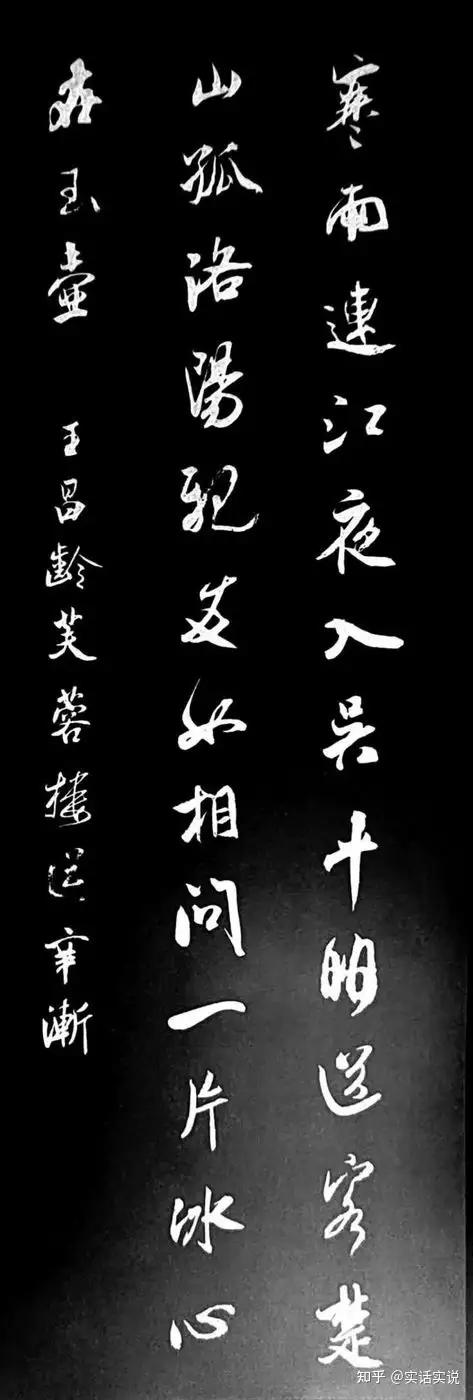 寒雨連江夜入吳平明送客楚
山孤洛陽親友如相問一片冰心
在玉壺 王昌齡芙蓉樓送辛漸
知乎 @实话实说